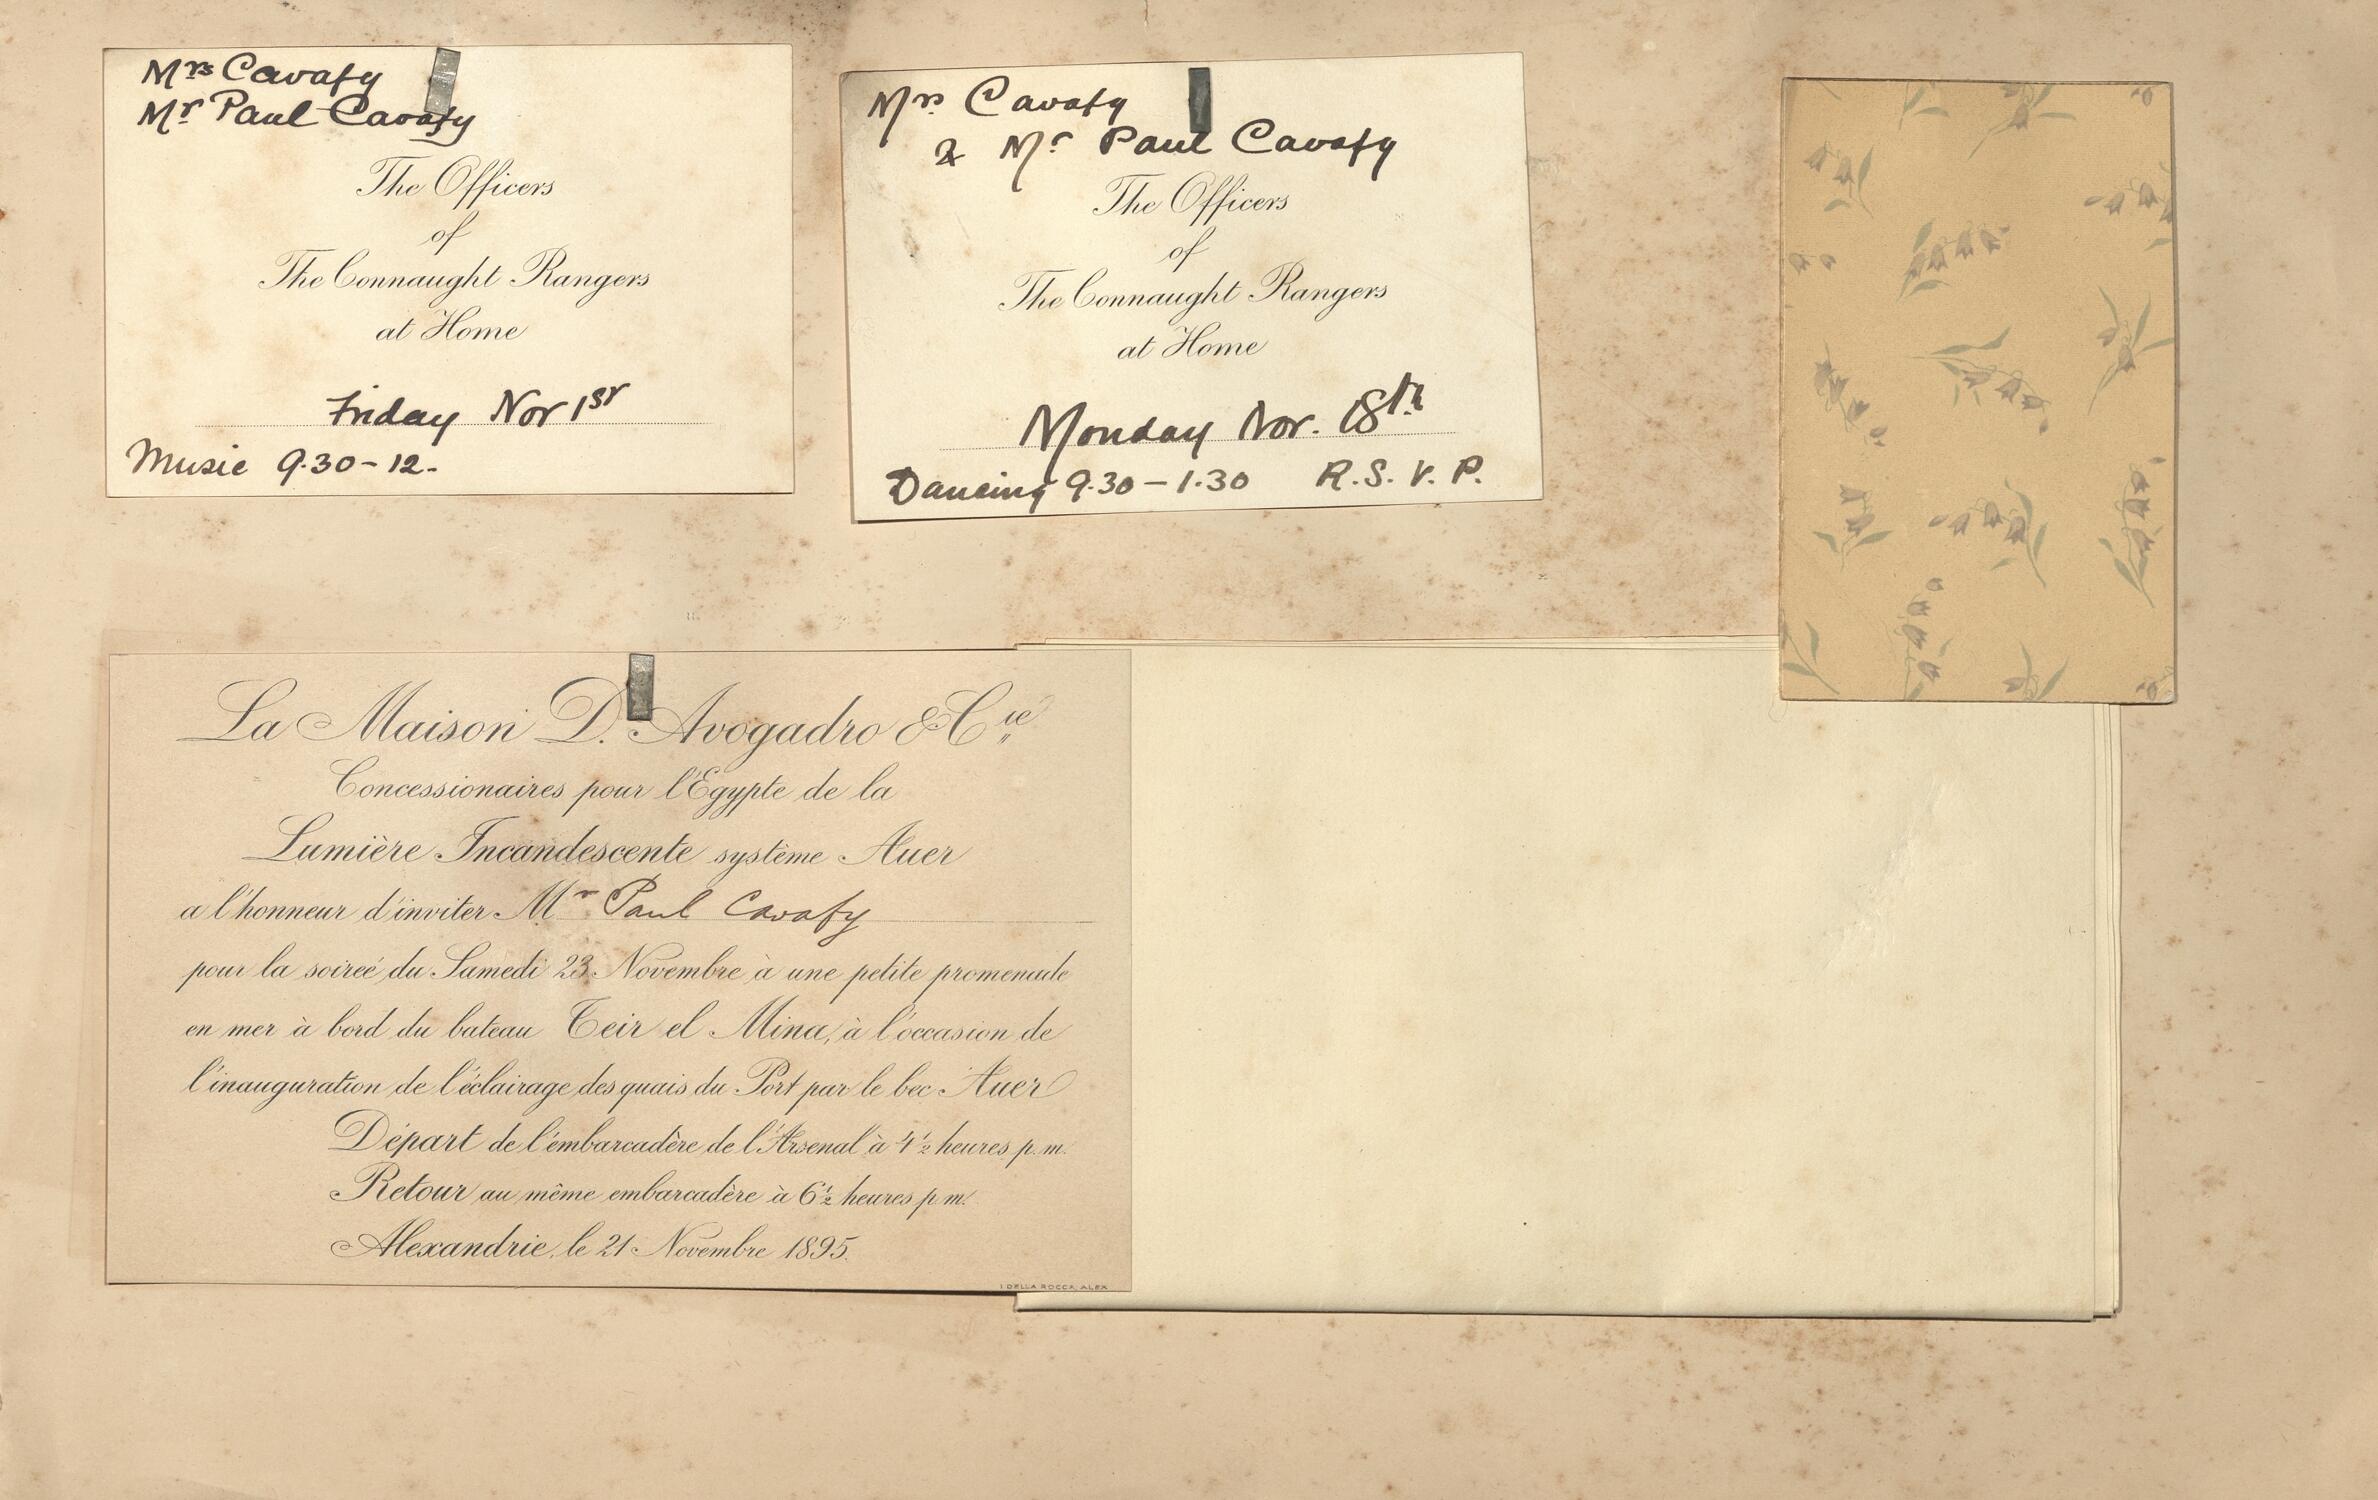 Mrs Cavafy
Mr Paul Cavafy
The Officers
of
The Connaught Rangers
at Home
Friday Nov 1st
Music 9.30-12.
Mrs Cavafy
& Mr Paul Cavafy
The Officers
of
The Connaught Rangers
at Home
Monday Nov. 18th
Dancing 9.30-1.30 R.S.V.P.
La Maison D. Avogadro & Cie
Concessionaires pour l'Egypte de la
Lumière Incandescente système Auer
a l'honneur d'inviter Mr Paul Cavafy
pour la soireé du Samedi 23 Novembre à une petite promenade
en mer à bord du bateau Teir el Mina, à l'occasion de
l'inauguration de l'éclairage des quais du Port par le bec Auer
Départ de l'embarcadère de l'Arsenal à 4 1/2 heures p.m.
Retour au même embarcadère à 6 1/2 heures p.m.
Alexandrie, le 21 Novembre 1895.
I DELLA ROCCA, ALEX